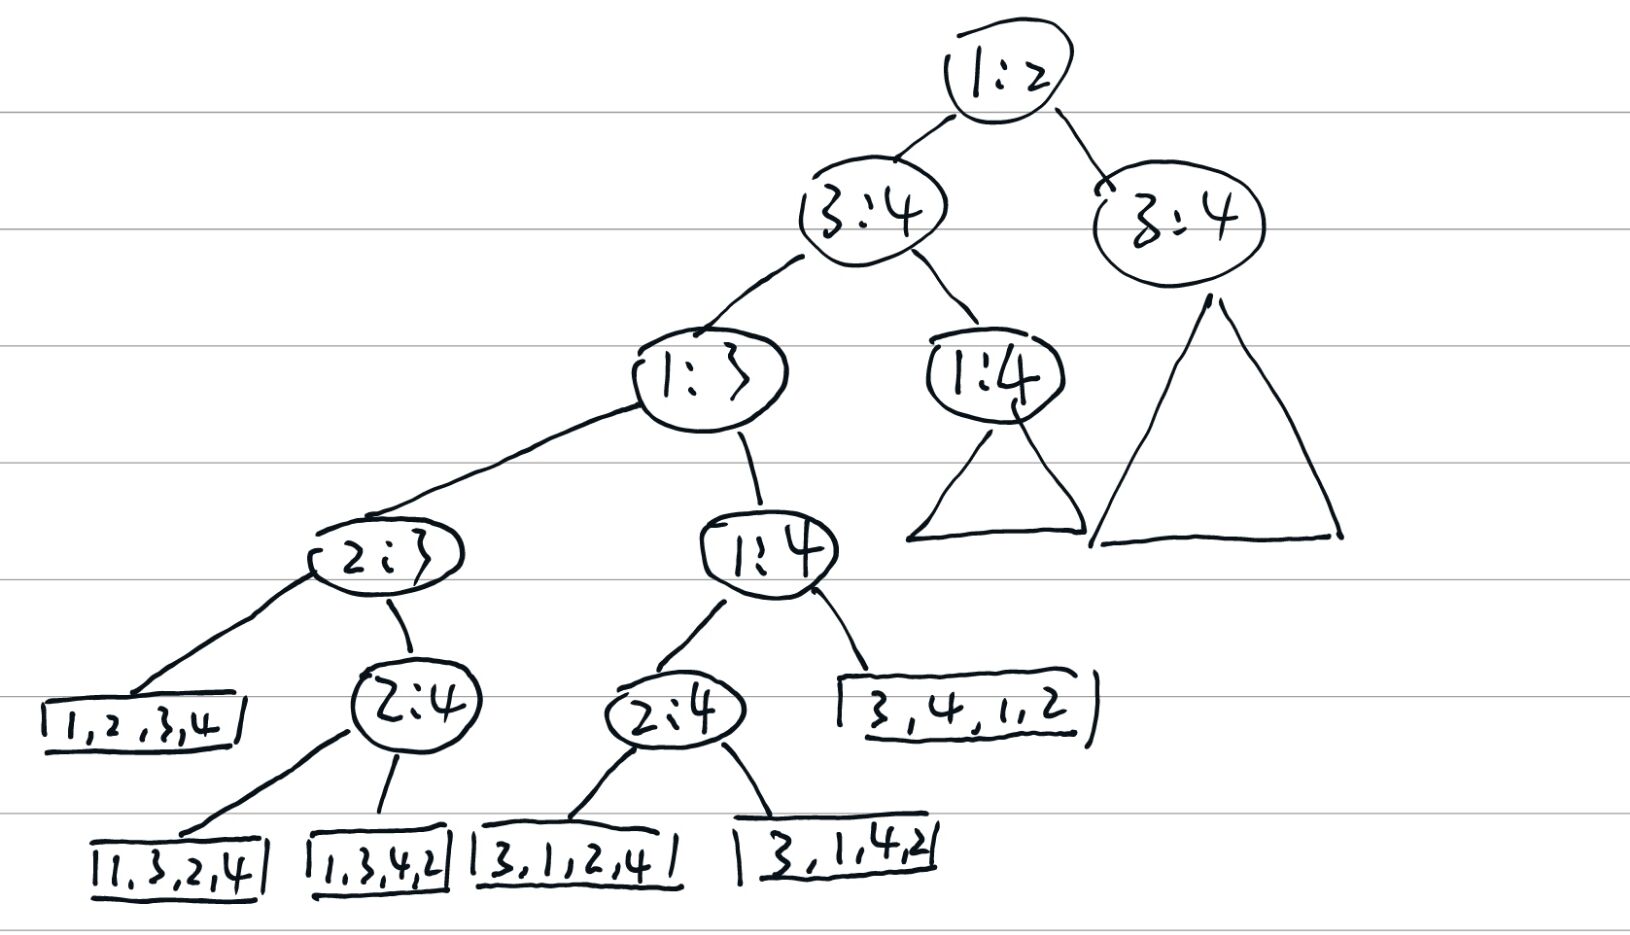 1:2
3:4 3:4
1:3 1:4
2:3 1:4
1,2,3,4 2:4 2:4 3,4,1,2
1,3,2,4 1,3,4,2 3,1,2,4 3,1,4,2